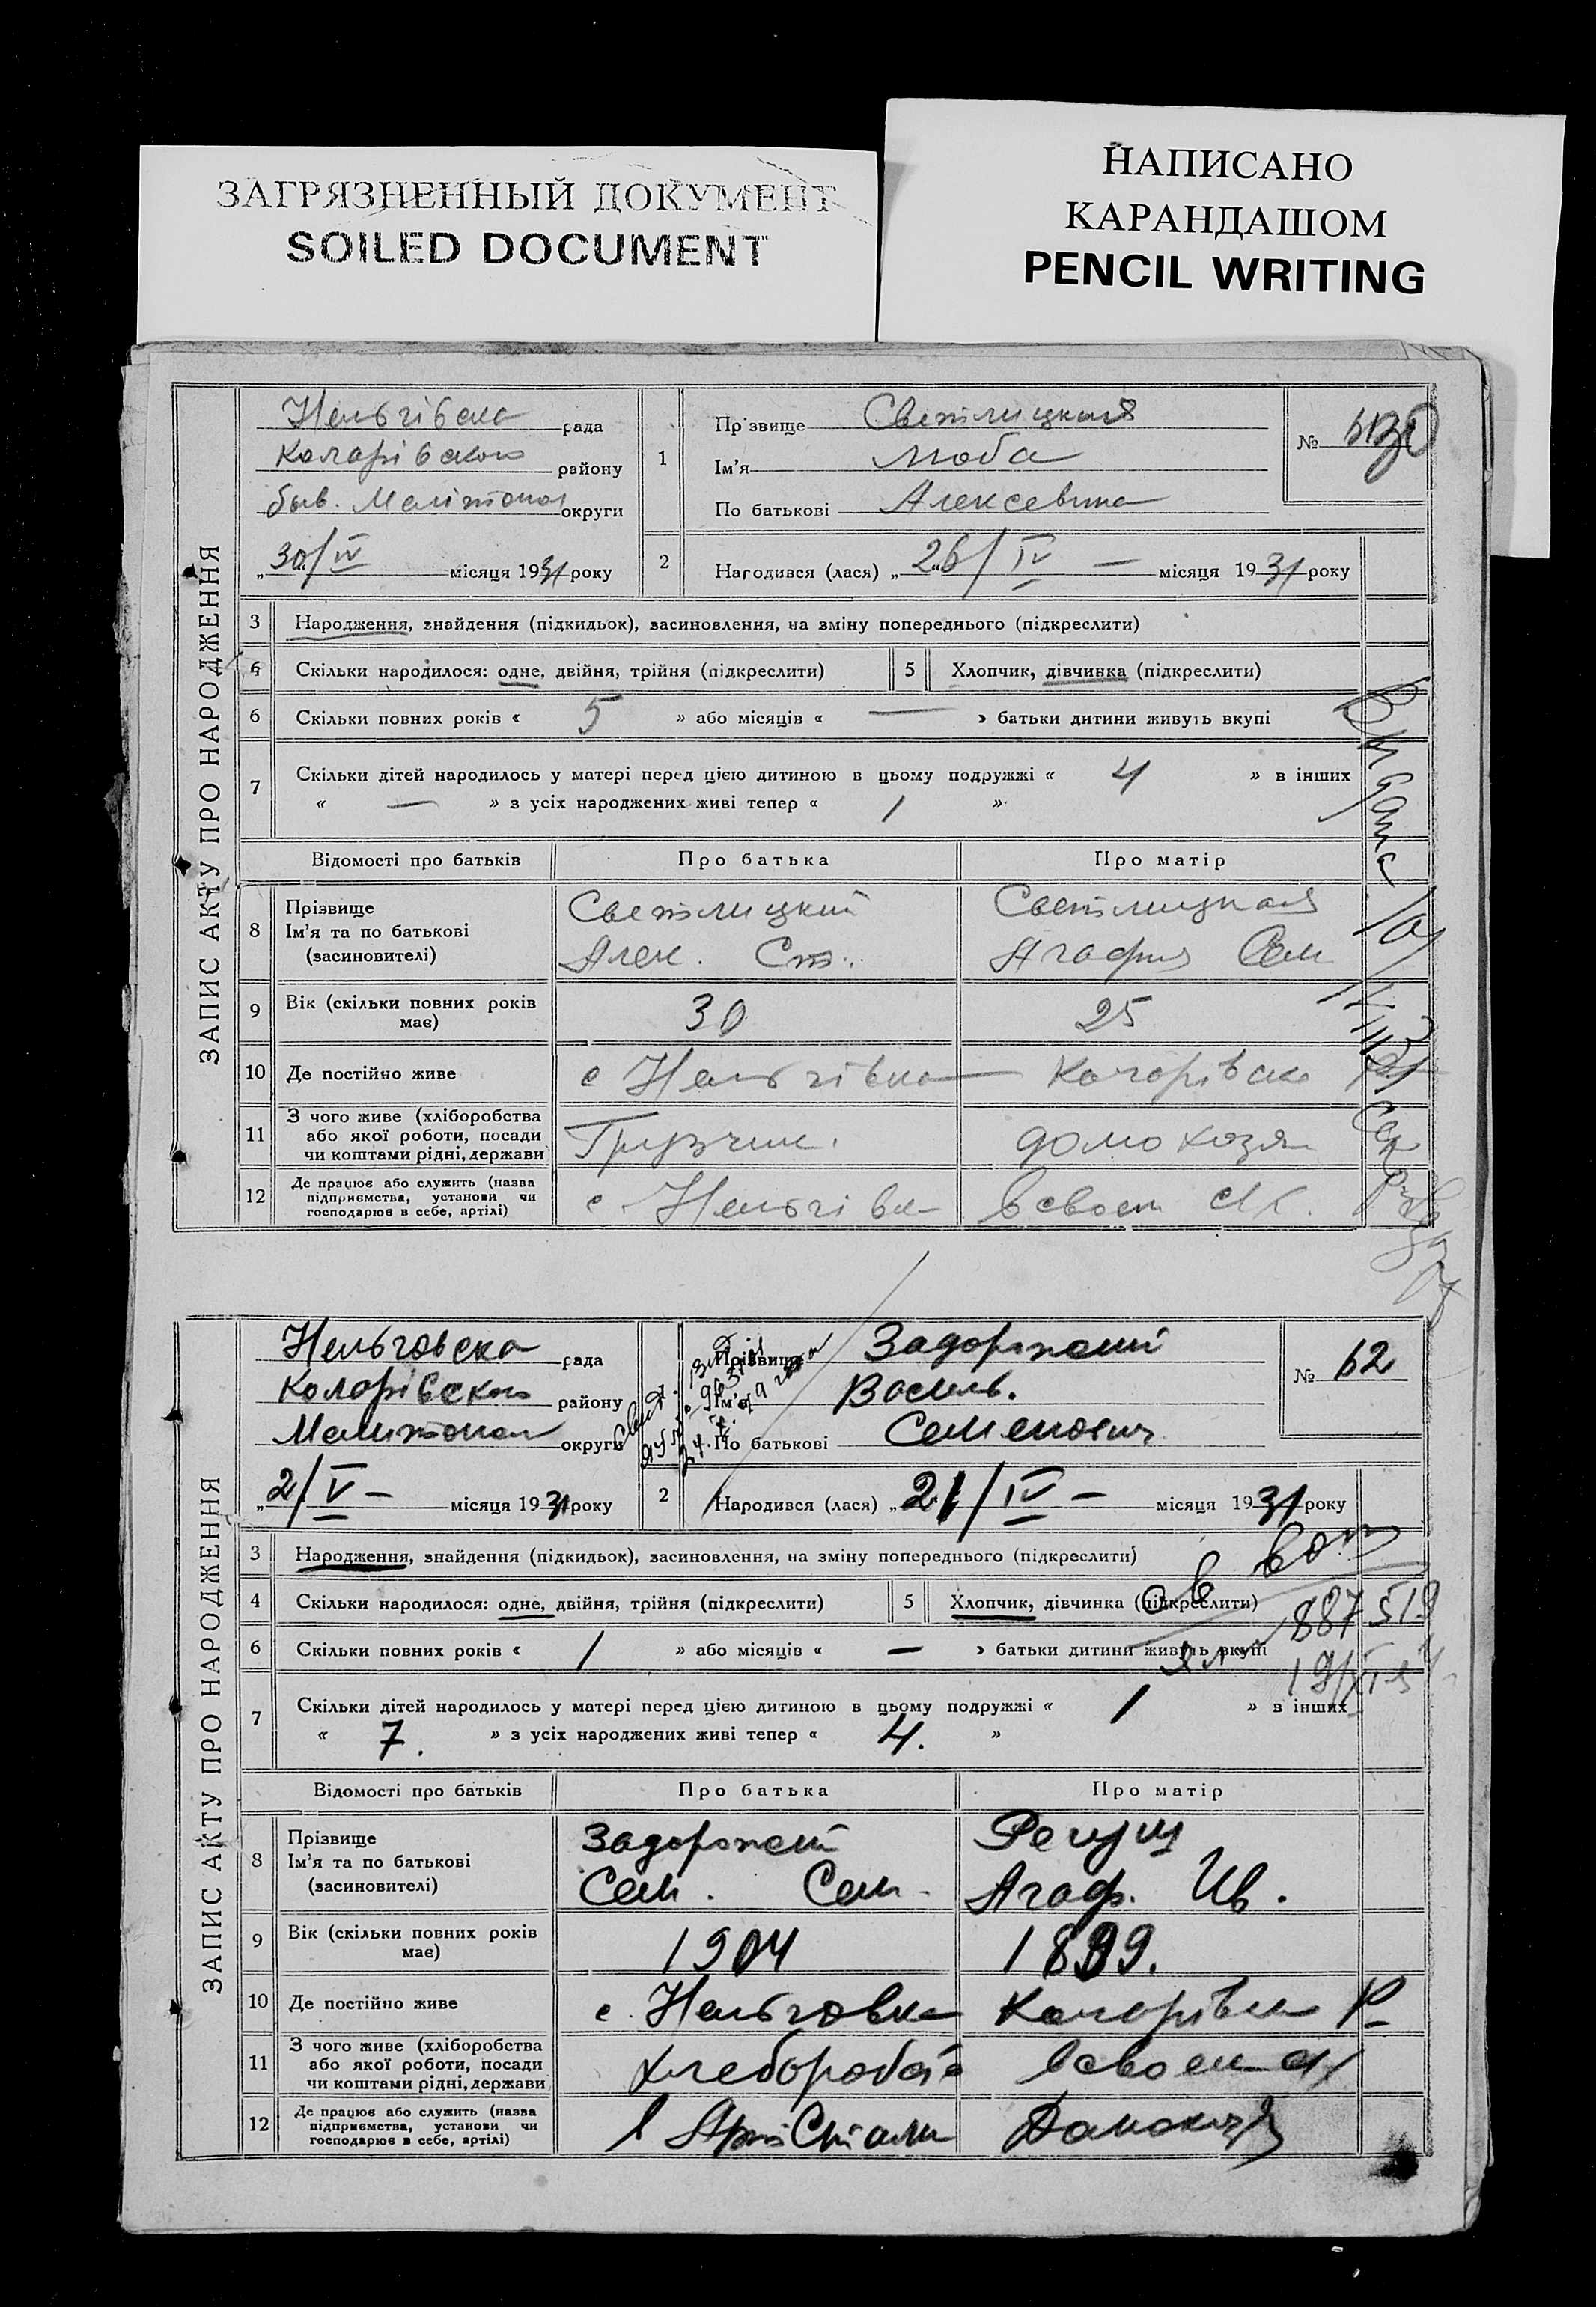 ЗАГРЯЗНЕННЫЙ ДОКУМЕНТ
SOILED DOCUMENT
НАПИСАНО
КАРАНДАШОМ
PENCIL WRITING
ЗАПИС АКТУ ПРО НАРОДЖЕННЯ
Нельгівска рада
Коларівского району
быв. Мелітопол округи
„30/IV місяця 1931 року
1
Прізвище Светлицкая
Ім'я Люба
По батькові Алексевина
№
2
Народився (лася) „26/IV — місяця 1931 року
3 Народження, знайдення (підкидьок), засиновлення, на зміну попереднього (підкреслити)
4 Скільки народилося: одне, двійня, трійня (підкреслити) 5 Хлопчик, дівчинка (підкреслити)
6 Скільки повних років « 5 » або місяців « — » батьки дитини живуть вкупі
7 Скільки дітей народилось у матері перед цією дитиною в цьому подружжі « 4 » в інших
« — » з усіх народжених живі тепер « 1 »
Відомості про батьків Про батька Про матір
8 Прізвище Ім'я та по батькові (засновителі)
Светлицкий Светлицкая
Алек. Ст. Агафия Сем
9 Вік (скільки повних років має) 30 25
10 Де постійно живе с Нельгівка Коларівско
11 З чого живе (хліборобства або якої роботи, посади чи коштами рідні, держави Грузчик. домохозя
12 Де працює або служить (назва підприємства, установи чи господарює в себе, артілі) с Нельгівк в своем
Выдана
ЗАПИС АКТУ ПРО НАРОДЖЕННЯ
Нельговска рада
Коларівского району
Мелитопол округи
„2/V — місяця 1931 року
1
Прізвище Задорожний
Ім'я Василь.
По батькові Семенович
№ 62
2
Народився (лася) „21/IV — місяця 1931 року
3 Народження, знайдення (підкидьок), засиновлення, на зміну попереднього (підкреслити)
4 Скільки народилося: одне, двійня, трійня (підкреслити) 5 Хлопчик, дівчинка (підкреслити)
887519
6 Скільки повних років « 1 » або місяців « — » батьки дитини живуть вкупі
7 Скільки дітей народилось у матері перед цією дитиною в цьому подружжі « 1 » в інших
« 7. » з усіх народжених живі тепер « 4. »
Відомості про батьків Про батька Про матір
8 Прізвище Ім'я та по батькові (засиновителі)
Задорожний
Сем. Сем. Агаф. Ив.
9 Вік (скільки повних років має) 1904 1899.
10 Де постійно живе с. Нельговка Коларівск Р
11 З чого живе (хліборобства або якої роботи, посади чи коштами рідні, держави в своем
12 Де працює або служить (назва підприємства, установи чи господарює в себе, артілі)